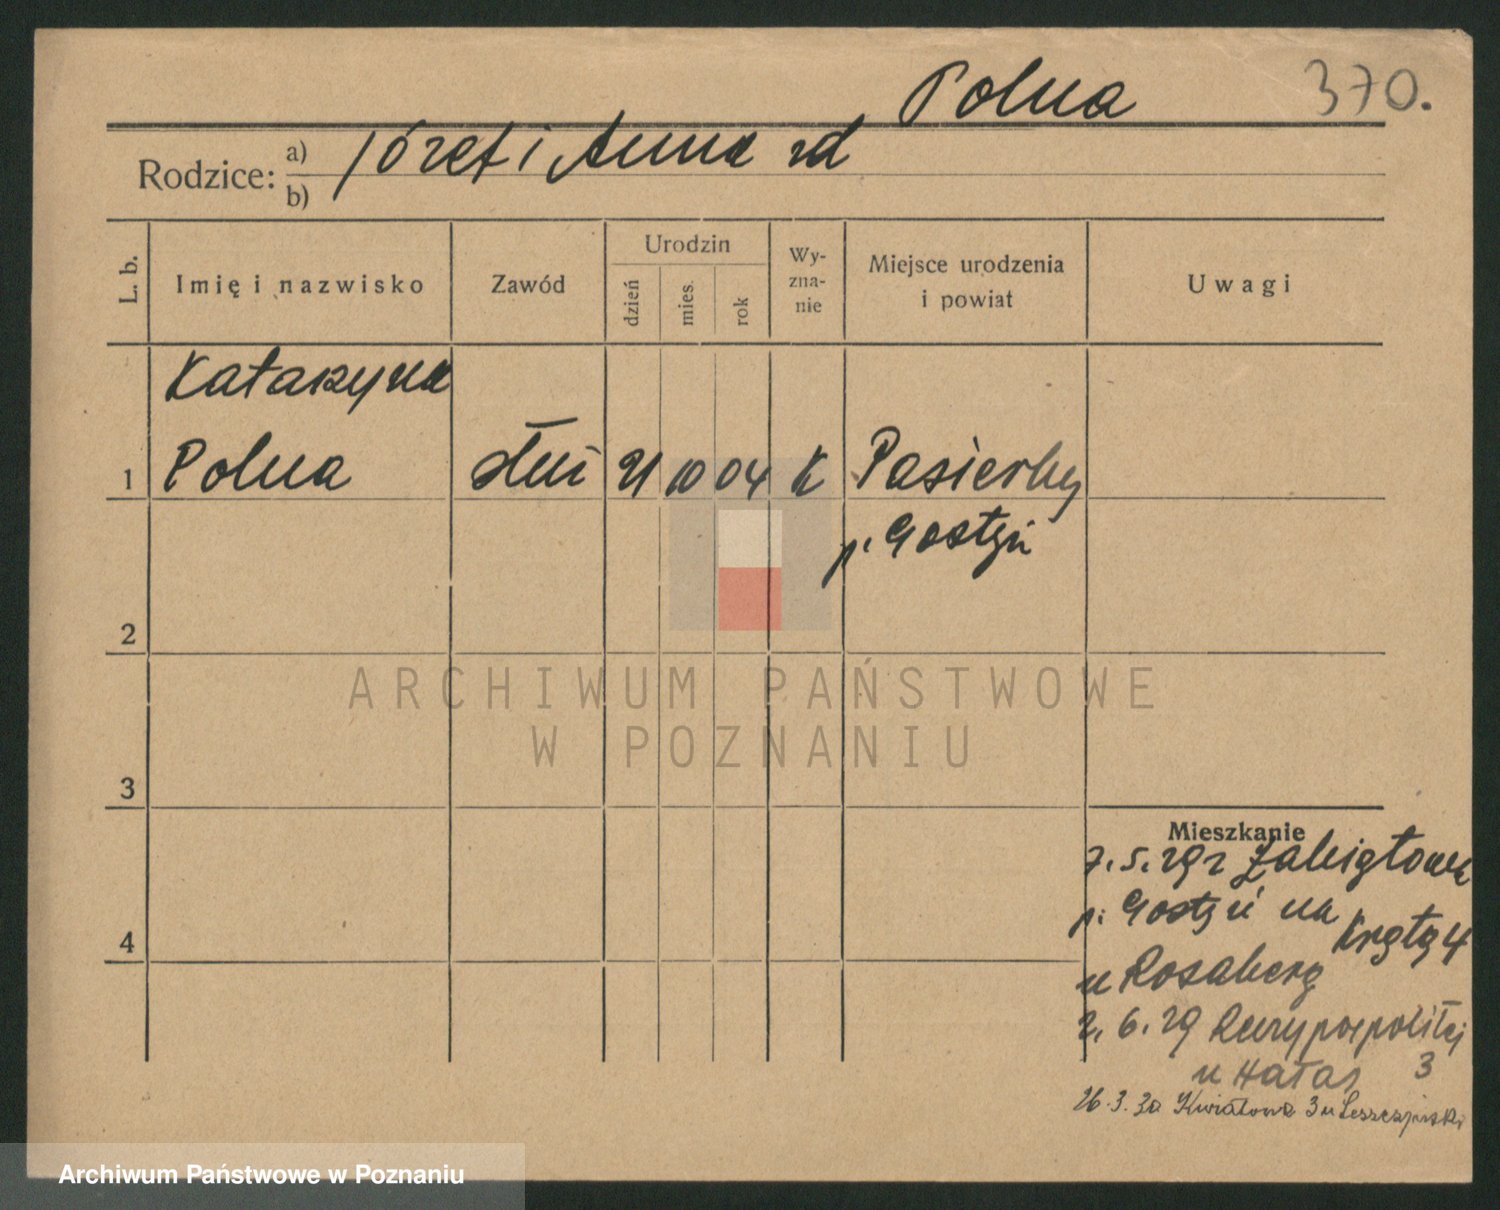 Polna
370.
Rodzice: a) Józef i Anna zd
b)
L. b.
Imię i nazwisko
Zawód
Urodzin
dzień
mies.
rok
Wy-
zna-
nie
Miejsce urodzenia
i powiat
Uwagi
Katarzyna
1 Polna służ 21 10 04 K Pasierby
p. Gostyń
2
ARCHIWUM PAŃSTWOWE
W POZNANIU
3
Mieszkanie
7. 5. 29 z
p. Gostyń na
4
Krętą 4
u Rosaberg
2. 6. 29 Rzeczypospolitej
u Hałas 3
26. 3. 30 Kwiatowa 3 u Leszczyński
Archiwum Państwowe w Poznaniu